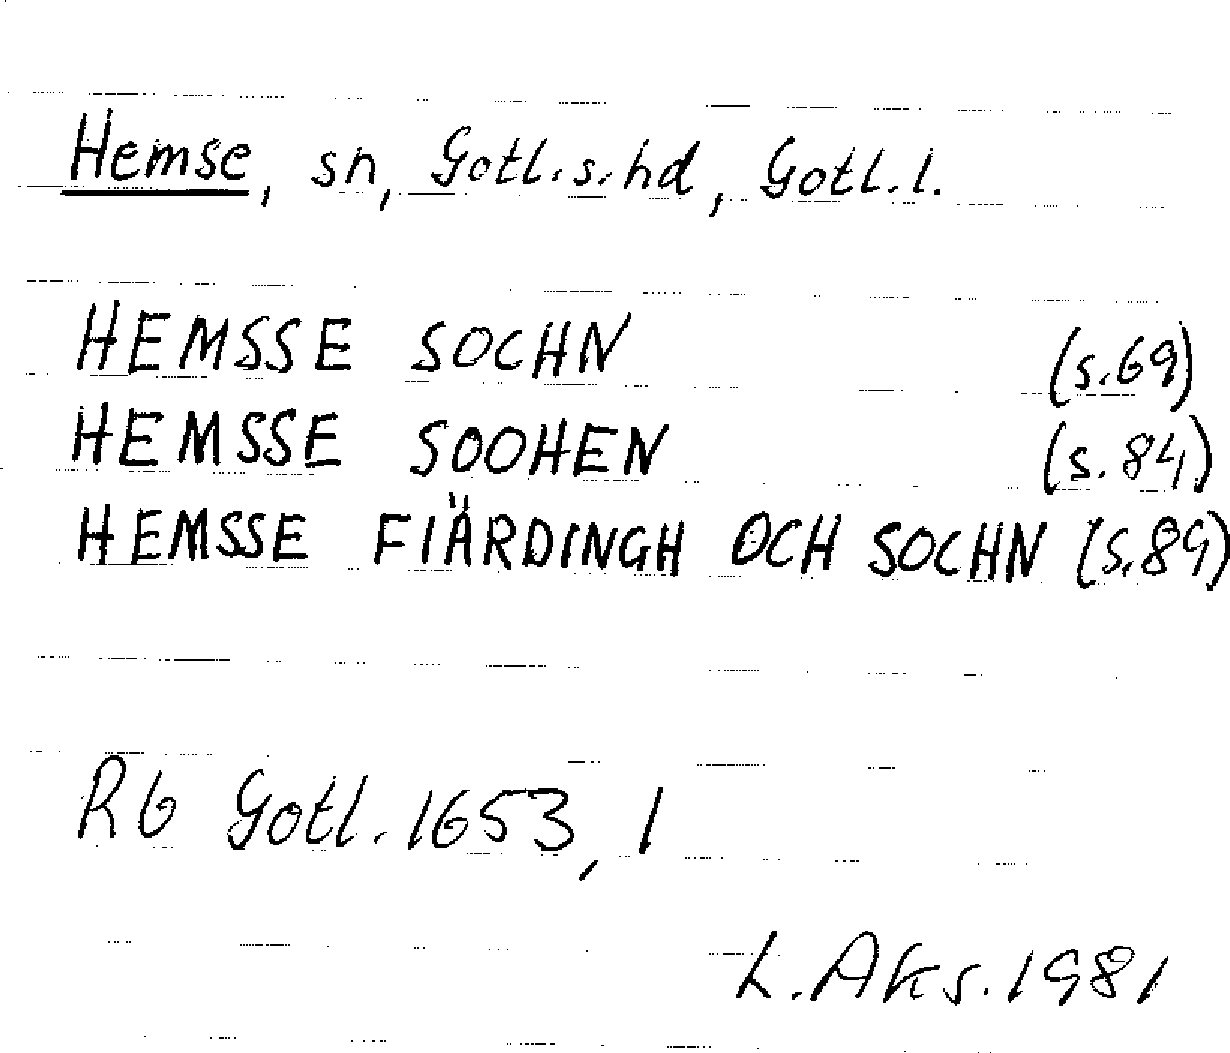 Hemse, sn, Gotl.s.hd, Gotl.l.
HEMSSE SOCHN (s.69)
HEMSSE SOOHEN (s.84)
HEMSSE FIÄRDINGH OCH SOCHN (s.89)
Rb Gotl. 1653, 1
L.Aks. 1981